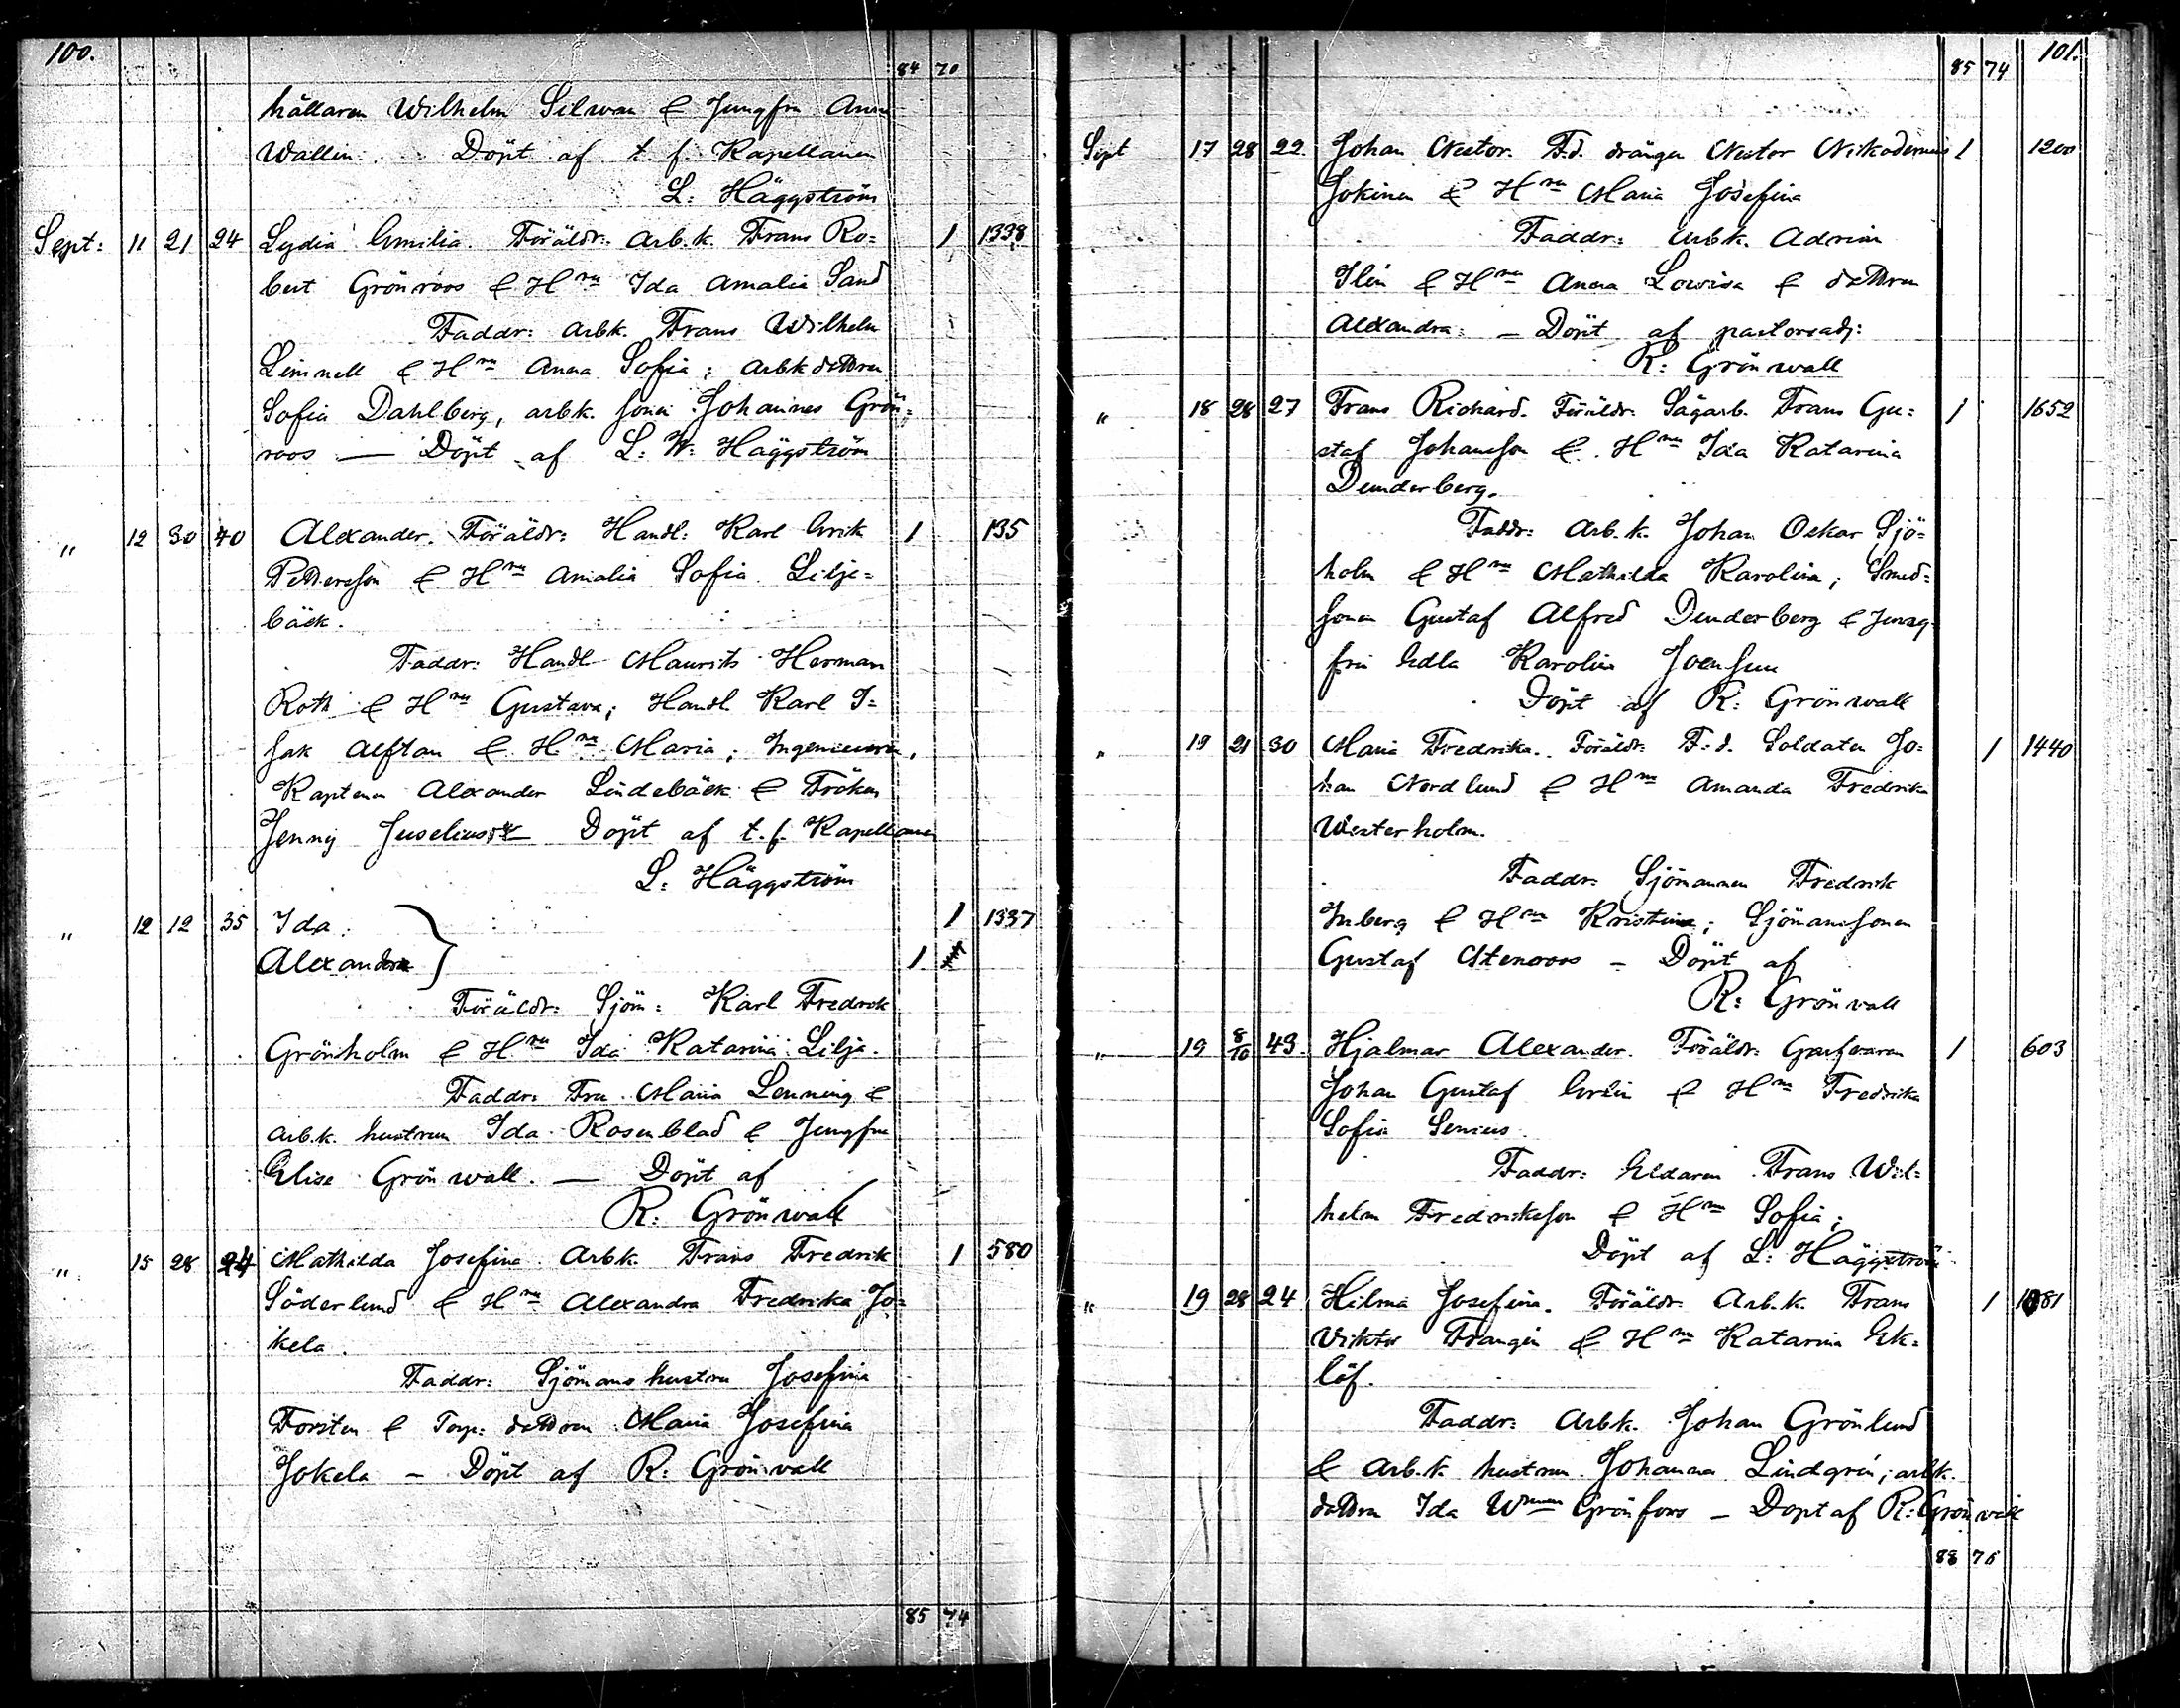 100.
84 70
hållaren Wilhelm Silwan & Jungfru Anna
Wallin. Döpt af t. f. Kapellanen
L: Häggström
Sept: 11 21 24 Lydia Emilia. Föräldr: Arb.k. Frans Ro= 1 1338
bert Grönroos & Hru Ida Amalia Sand
Faddr: Arbk. Frans Wilhelm
Limnell & Hru Anna Sofia; Arbk dottren
Sofia Dahlberg, arbk. sonen Johannes Grön=
roos — Döpt af L: W: Häggström
" 12 30 40 Alexander. Föräldr: Handl: Karl Erik 1 135
Pettersson & Hru Amalia Sofia Lilje=
bäck.
Faddr: Handl Maurits Herman
Roth & Hru Gustava; Handl Karl I=
sak Alftan & Hru Maria; Ingenieuren,
Kaptenen Alexander Lindebäck & Fröken
Jenny Juselius — Döpt af t. f. Kapellanen
L: Häggström
" 12 12 35 Ida 1 1337
Alexander 1
Föräldr: Sjöm: Karl Fredrik
Grönholm & Hru Ida Katarina Lilja.
Faddr: Fru Maria Lenning &
arb.k. hustrun Ida Rosenblad & Jungfru
Elise Grönwall. — Döpt af
R: Grönwall
" 15 28 24 Mathilda Josefina. Arbk. Frans Fredrik 1 580
Söderlund & Hru Alexandra Fredrika Jo=
kela.
Faddr: Sjömans hustru Josefina
Forsten & Torp: dottren Maria Josefina
Jokela — Döpt af R: Grönvall
85 74
101.
85 74
Sept 17 28 22 Johan Nestor. F.d. drängen Nestor Nikodemus 1 1200
Jokinen & Hru Maria Josefina
Faddr: Arbk. Adrian
Ilén & Hru Anna Lovisa & dottren
Alexandra: — Döpt af pastorsadj:
R: Grönwall
" 18 28 27 Frans Richard. Föräldr: Sågarb. Frans Gu= 1 1652
staf Johansson & Hru Ida Katarina
Dunderberg.
Faddr: Arb.k. Johan Oskar Sjö=
holm & Hru Mathilda Karolina; Smed=
sonen Gustaf Alfred Dunderberg & Jung=
frun Edla Karolina Joensuu
Döpt af R: Grönwall
" 19 21 30 Maria Fredrika. Föräldr: F.d. Soldaten Jo= 1 1440
han Nordlund & Hru Amanda Fredrika
Westerholm.
Faddr: Sjömannen Fredrik
Inberg & Hru Kristina; Sjömanssonen
Gustaf Stenroos — Döpt af
R: Grönvall
" 19 8/10 43 Hjalmar Alexander. Föräldr: Garfvaren 1 603
Johan Gustaf & Hru Fredrika
Sofia Senius.
Faddr: Eldaren Frans Wil=
helm Fredriksson & Hru Sofia;
Döpt af L: Häggström
" 19 28 24 Hilma Josefina. Föräldr: Arb.k. Frans 1 1081
Viktor Frangén & Hru Katarina Ek=
löf.
Faddr: Arbk. Johan Grönlund
& Arb.k. hustrun Johanna Lindgrén; arbk.
dottren Ida Grönfors — Döpt af R: Grönvall
88 75